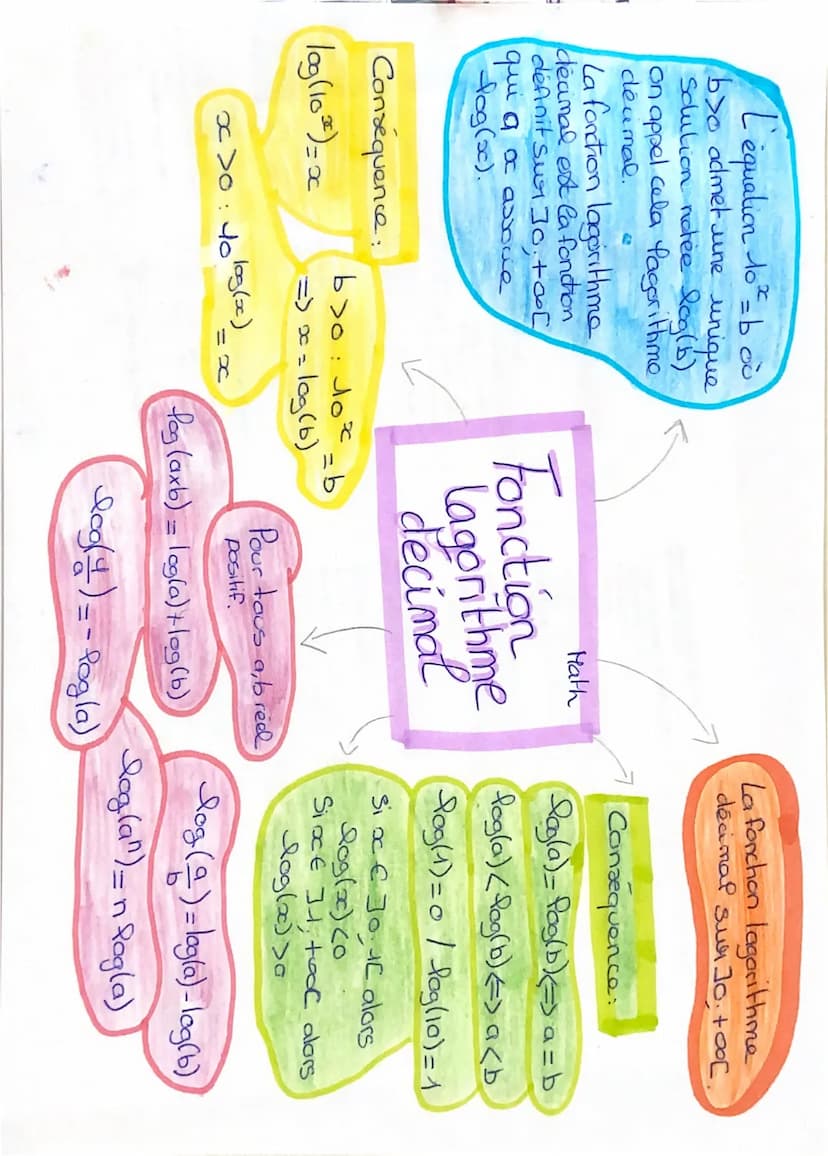 Math
Fonction
lagorithme
décimal
L'équation 10^x = b où
b>0 admet une unique
solution notée log(b)
on appel cela lagorithme
décimal.
La fonction lagorithme
décimal est la fonction
définit sur ]0;+∞[
qui a x associe
log(x).
La fonction lagorithme
décimal sur ]0;+∞[.
Conséquence:
log(10^x) = x
b>0 : 10^x = b
=> x = log(b)
x>0 : 10^log(x) = x
Conséquence:
log(a) = log(b) <=> a = b
log(a) < log(b) <=> a < b
log(1) = 0 / log(10) = 1
Si x ∈ ]0;1[ alors
log(x) < 0
Si x ∈ ]1;+∞[ alors
log(x) > 0
Pour tous a,b réel
positif.
log(a×b) = log(a) + log(b)
log(1/a) = - log(a)
log(a/b) = log(a) - log(b)
log(a^n) = n log(a)